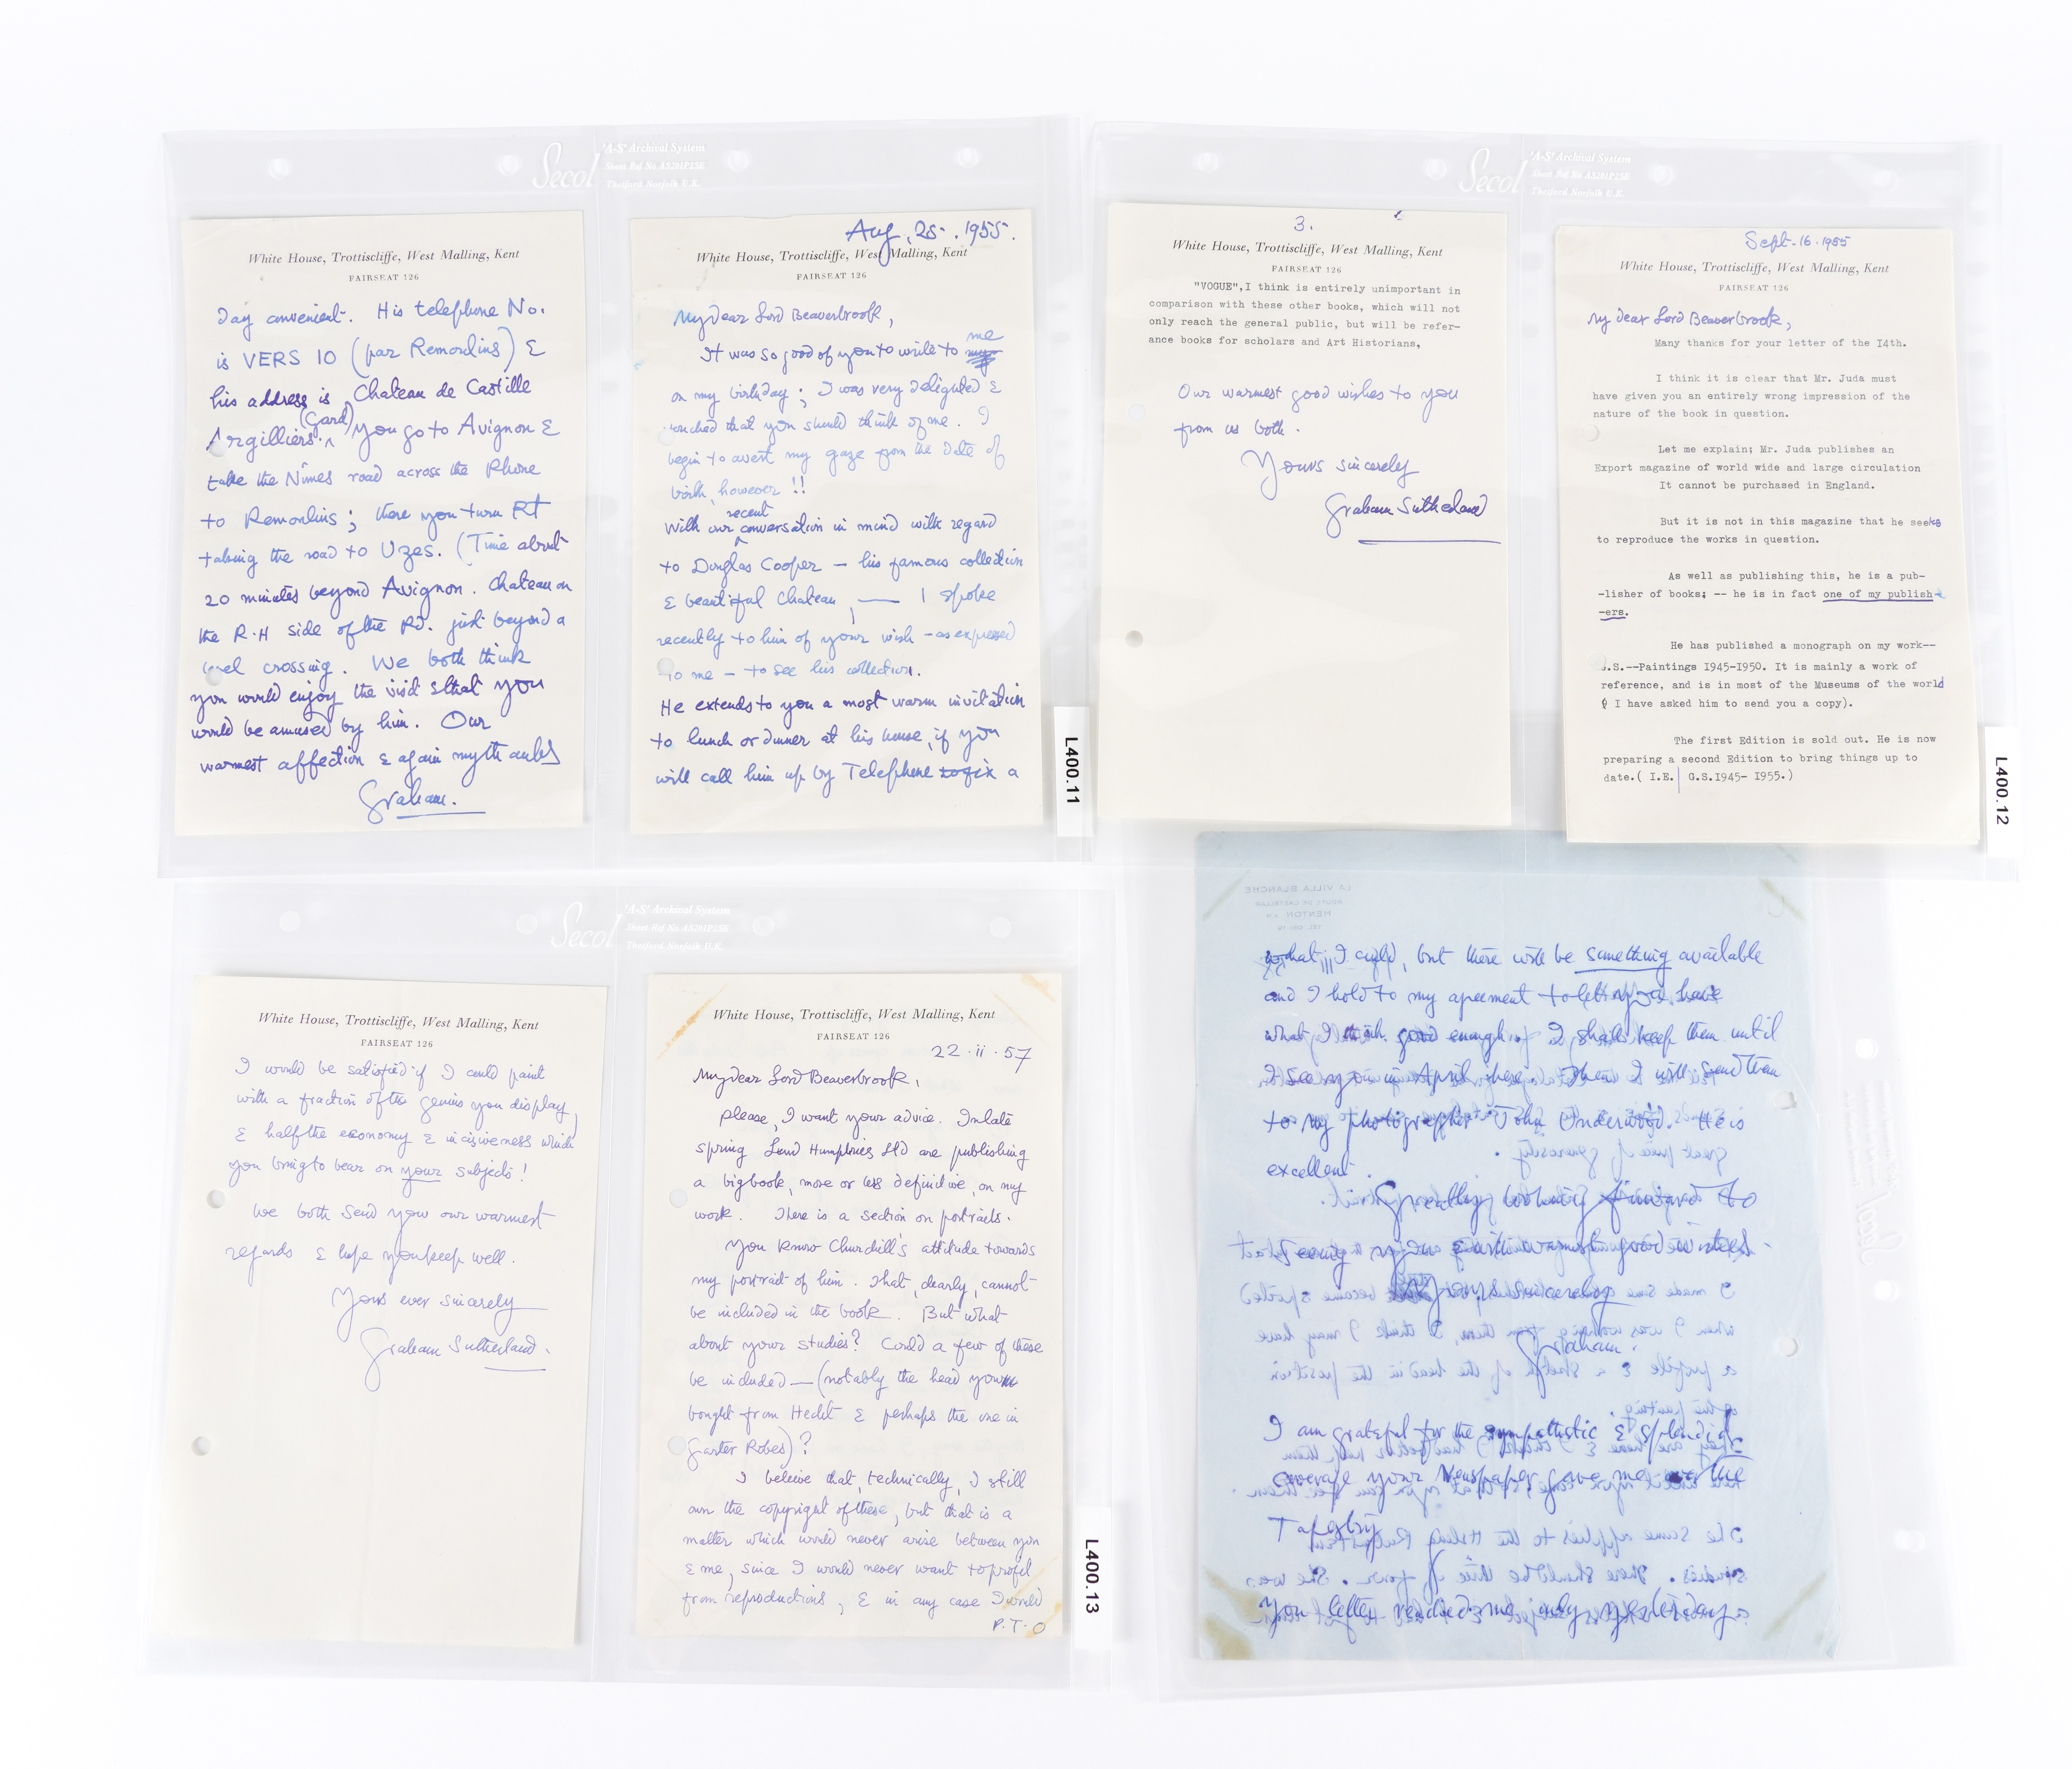 Secol
'A-S' Archival System
Sheet Ref No AS201P2SE
Thetford Norfolk U.K.
White House, Trottiscliffe, West Malling, Kent
FAIRSEAT 126
day convenient. His telephone No.
is VERS 10 (par Remoulins) &
his address is Chateau de Castille
(Gard)
Argilliers. You go to Avignon &
take the Nîmes road across the Rhone
to Remoulins; there you turn Rt
taking the road to Uzes. (Time about
20 minutes beyond Avignon. Chateau on
the R.H side of the Rd. just beyond a
level crossing. We both think
you would enjoy the visit & that you
would be amused by him. Our
warmest affection & again my thanks
Graham.
Aug. 25. 1955.
White House, Trottiscliffe, West Malling, Kent
FAIRSEAT 126
My dear Lord Beaverbrook,
me
It was so good of you to write to my
on my birthday; I was very delighted &
touched that you should think of me. I
begin to avert my gaze from the date of
birth, however!!
recent
With our conversation in mind with regard
to Douglas Cooper — his famous collection
& beautiful Chateau, — I spoke
recently to him of your wish - as expressed
to me - to see his collection.
He extends to you a most warm invitation
to lunch or dinner at his house, if you
will call him up by Telephone to fix a
L400.11
Secol
'A-S' Archival System
Sheet Ref No AS201P2SE
Thetford Norfolk U.K.
3.
White House, Trottiscliffe, West Malling, Kent
FAIRSEAT 126
"VOGUE",I think is entirely unimportant in
comparison with these other books, which will not
only reach the general public, but will be refer-
ance books for scholars and Art Historians,
Our warmest good wishes to you
from us both.
Yours sincerely
Graham Sutherland
Sept. 16. 1955
White House, Trottiscliffe, West Malling, Kent
FAIRSEAT 126
My dear Lord Beaverbrook,
Many thanks for your letter of the I4th.
I think it is clear that Mr. Juda must
have given you an entirely wrong impression of the
nature of the book in question.
Let me explain; Mr. Juda publishes an
Export magazine of world wide and large circulation
It cannot be purchased in England.
But it is not in this magazine that he seeks
to reproduce the works in question.
As well as publishing this, he is a pub-
-lisher of books; -- he is in fact one of my publish-
-ers.
He has published a monograph on my work--
G.S.--Paintings 1945-1950. It is mainly a work of
reference, and is in most of the Museums of the world
( I have asked him to send you a copy).
The first Edition is sold out. He is now
preparing a second Edition to bring things up to
date.( I.E. G.S.1945- 1955.)
L400.12
Secol
'A-S' Archival System
Sheet Ref No AS201P2SE
Thetford Norfolk U.K.
White House, Trottiscliffe, West Malling, Kent
FAIRSEAT 126
I would be satisfied if I could paint
with a fraction of the genius you display,
& half the economy & incisiveness which
you bring to bear on your subjects!
We both send you our warmest
regards & hope you keep well.
Yours ever sincerely
Graham Sutherland.
White House, Trottiscliffe, West Malling, Kent
FAIRSEAT 126
22.ii.57
My dear Lord Beaverbrook,
Please, I want your advice. In late
spring Lund Humphries Ltd are publishing
a big book, more or less definitive, on my
work. There is a section on portraits.
You know Churchill's attitude towards
my portrait of him. That, clearly, cannot
be included in the book. But what
about your studies? Could a few of these
be included — (notably the head you
bought from Hecht & perhaps the one in
Garter Robes)?
I beleive that, technically, I still
own the copyright of these, but that is a
matter which would never arise between you
& me, since I would never want to profit
from reproductions, & in any case I would
P.T.O
L400.13
LA VILLA BLANCHE
ROUTE DE CASTELLAR
MENTON
what I could, but there will be something available
and I hold to my agreement to let you have
what I think good enough. I shall keep them until
I see you in April here. Then I will send them
to my photographer John Underwood. He is
excellent.
Greatly looking forward to
seeing you & with warmest good wishes
Yours sincerely
Graham.
I am grateful for the sympathetic & splendid
coverage your Newspaper gave me over the
Tapestry
Your letter reached me only yesterday